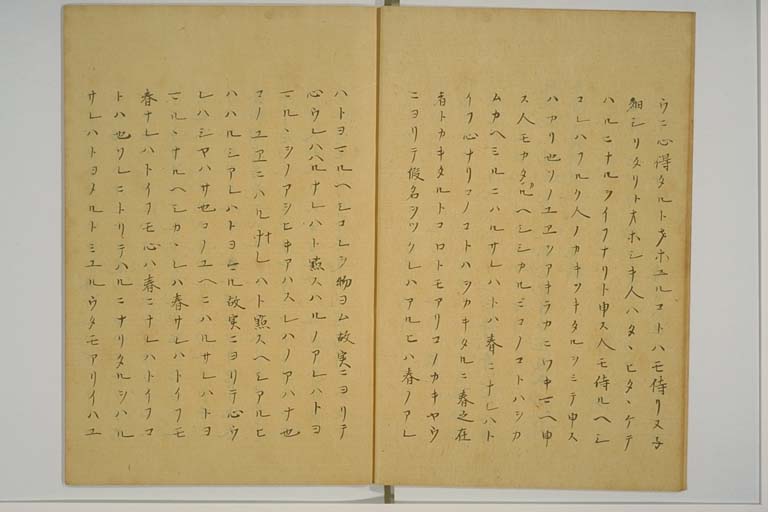 ウニ心得タルトオホユルコトハモ侍リヌ子
細シリタリトオホシキ人ハタヽヒタヽケテ
ハルニナルヲイフナリト申ス人モ侍ルヘシ
コレハフルク人ノカキツキタルヲミテ申ス
ハカリ也ソノユヱヲアキラカニワキマヘ申
ス人モカタルヘシシカルニコノコトハシカ
ムカヘミルニハルサレハトハ春ニナレハト
イフ心ナリコノコトハヲカキタルニ春之在
者トカキタルトコロトモアリコノカキヤウ
ニヨリテ仮名ヲツクレハアルヒハ春ノアレ
ハトヨマルヘシコレヲ物ヨム故実ニヨリテ
心ウレハハルナレハト點スハルノアレハトヨ
マルヽシノアシヒキアハスレハノアハナ也
コノユヱニハルナレハト點スヘシアルヒ
ハハルシアレハトヨマル故実ニヨリテ心ウ
レハシヤハサ也コノユヘニハルサレハトヨ
マルヽナルヘシカヽレハ春サレハトイフモ
春ナレハトイフモ心ハ春ニナレハトイフコ
トハ也ソレニトリテハルニナリタルヲハル
サレハトヨメルトミユルウタモアリイハユ